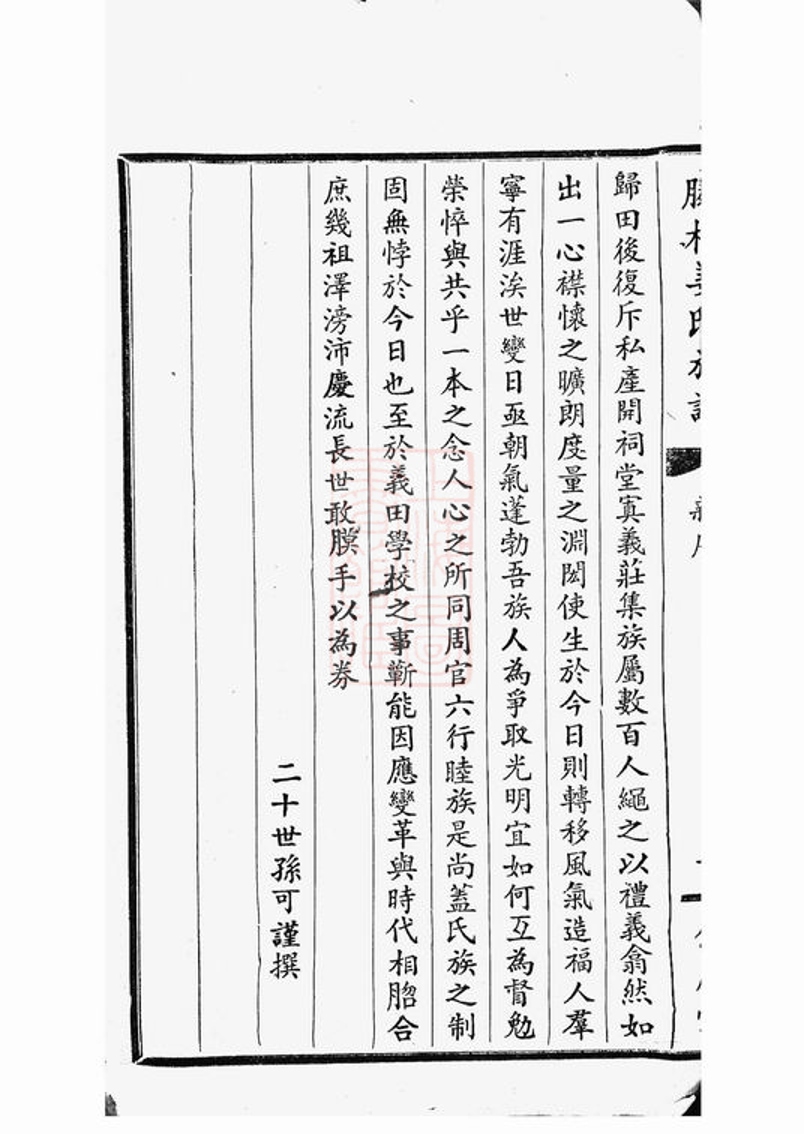 歸田後復斥私產開祠堂寘義莊集族屬數百人繩之以禮義翕然如
出一心襟懷之曠朗度量之淵閎使生於今日則轉移風氣造福人羣
寧有涯涘世變日亟朝氣蓬勃吾族人為爭取光明宜如何互為督勉
榮悴與共乎一本之念人心之所同周官六行睦族是尚蓋氏族之制
固無悖於今日也至於義田學校之事蘄能因應變革與時代相脗合
庶幾祖澤滂沛慶流長世敢膜手以為券
二十世孫可謹撰